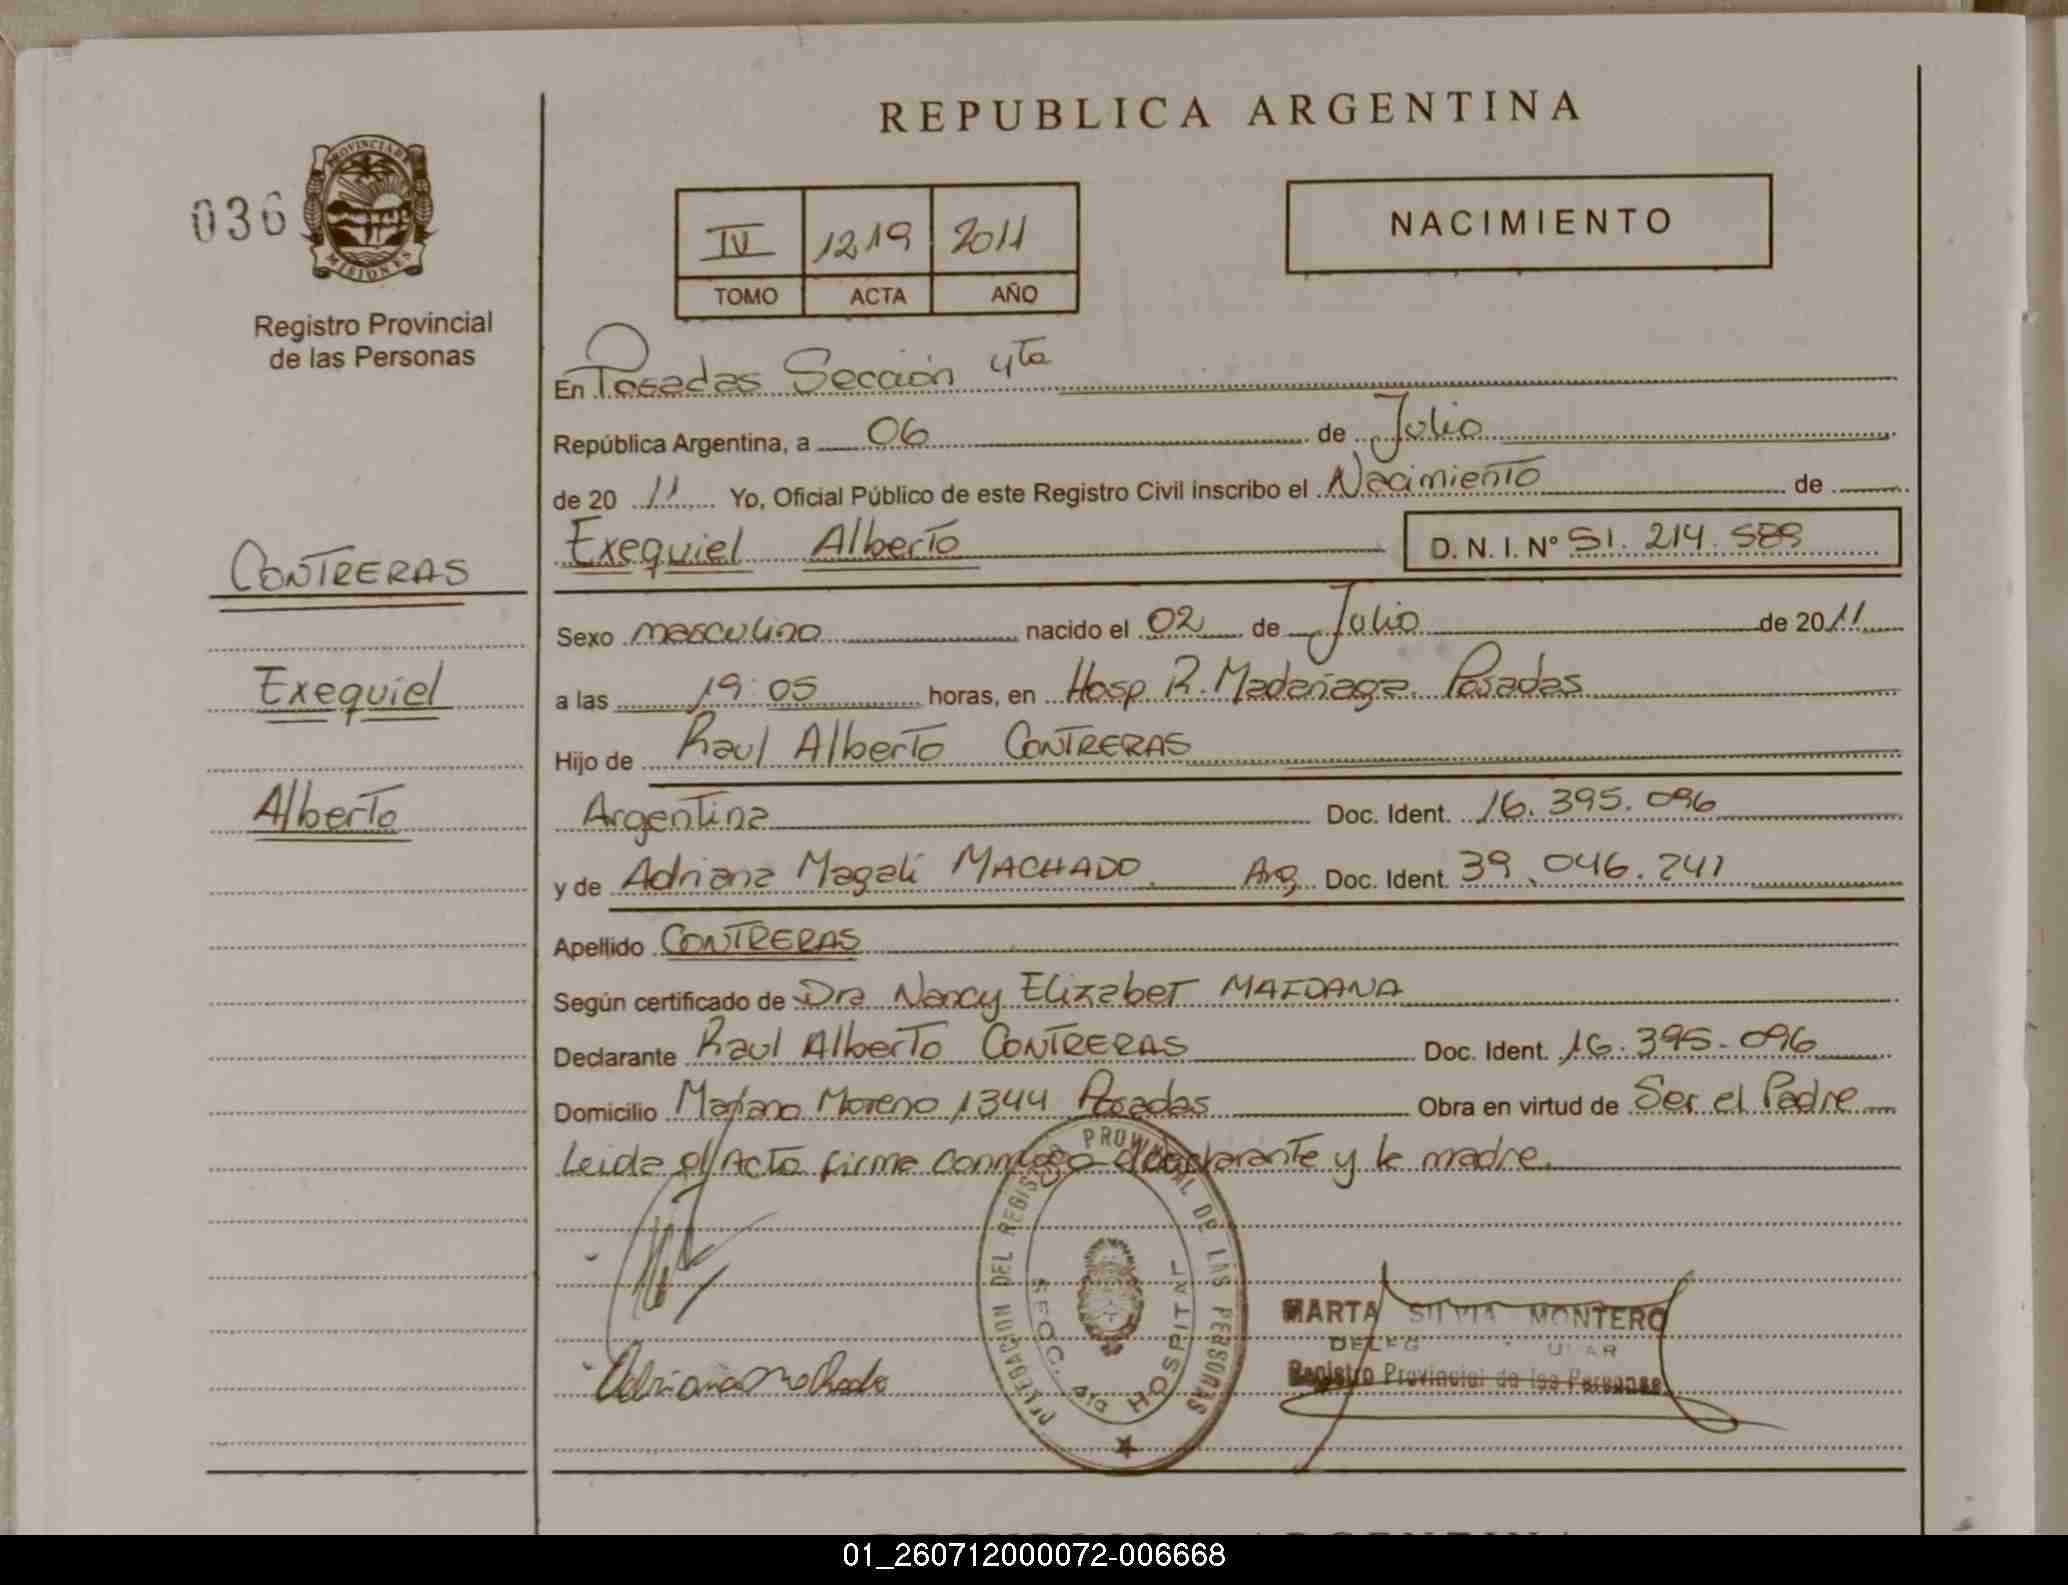 REPUBLICA ARGENTINA
036
PROVINCIA DE
MISIONES
Registro Provincial
de las Personas
IV 1219 2011
TOMO ACTA AÑO
NACIMIENTO
En Posadas Sección 4ta
República Argentina, a 06 de Julio
de 20 11 Yo, Oficial Público de este Registro Civil inscribo el Nacimiento de
Exequiel Alberto D. N. I. Nº 51. 214. 589
CONTRERAS
Exequiel
Alberto
Sexo masculino nacido el 02 de Julio de 2011
a las 19:05 horas, en Hosp R. Madariaga Posadas
Hijo de Raul Alberto CONTRERAS
Argentina Doc. Ident. 16. 395. 096
y de Adriana Magali MACHADO Arg Doc. Ident. 39. 046. 241
Apellido CONTRERAS
Según certificado de Dra Nancy Elizabet MAIDANA
Declarante Raul Alberto CONTRERAS Doc. Ident. 16. 395. 096
Domicilio Mariano Moreno 1344 Posadas Obra en virtud de Ser el Padre
Leida el Acta firma conmigo declarante y la madre.
DELEGACION DEL REGISTRO PROVINCIAL DE LAS PERSONAS
SECC. HOSPITAL
MARTA SILVIA MONTERO
Registro Provincial de las Personas
Adriana Machado
01_260712000072-006668